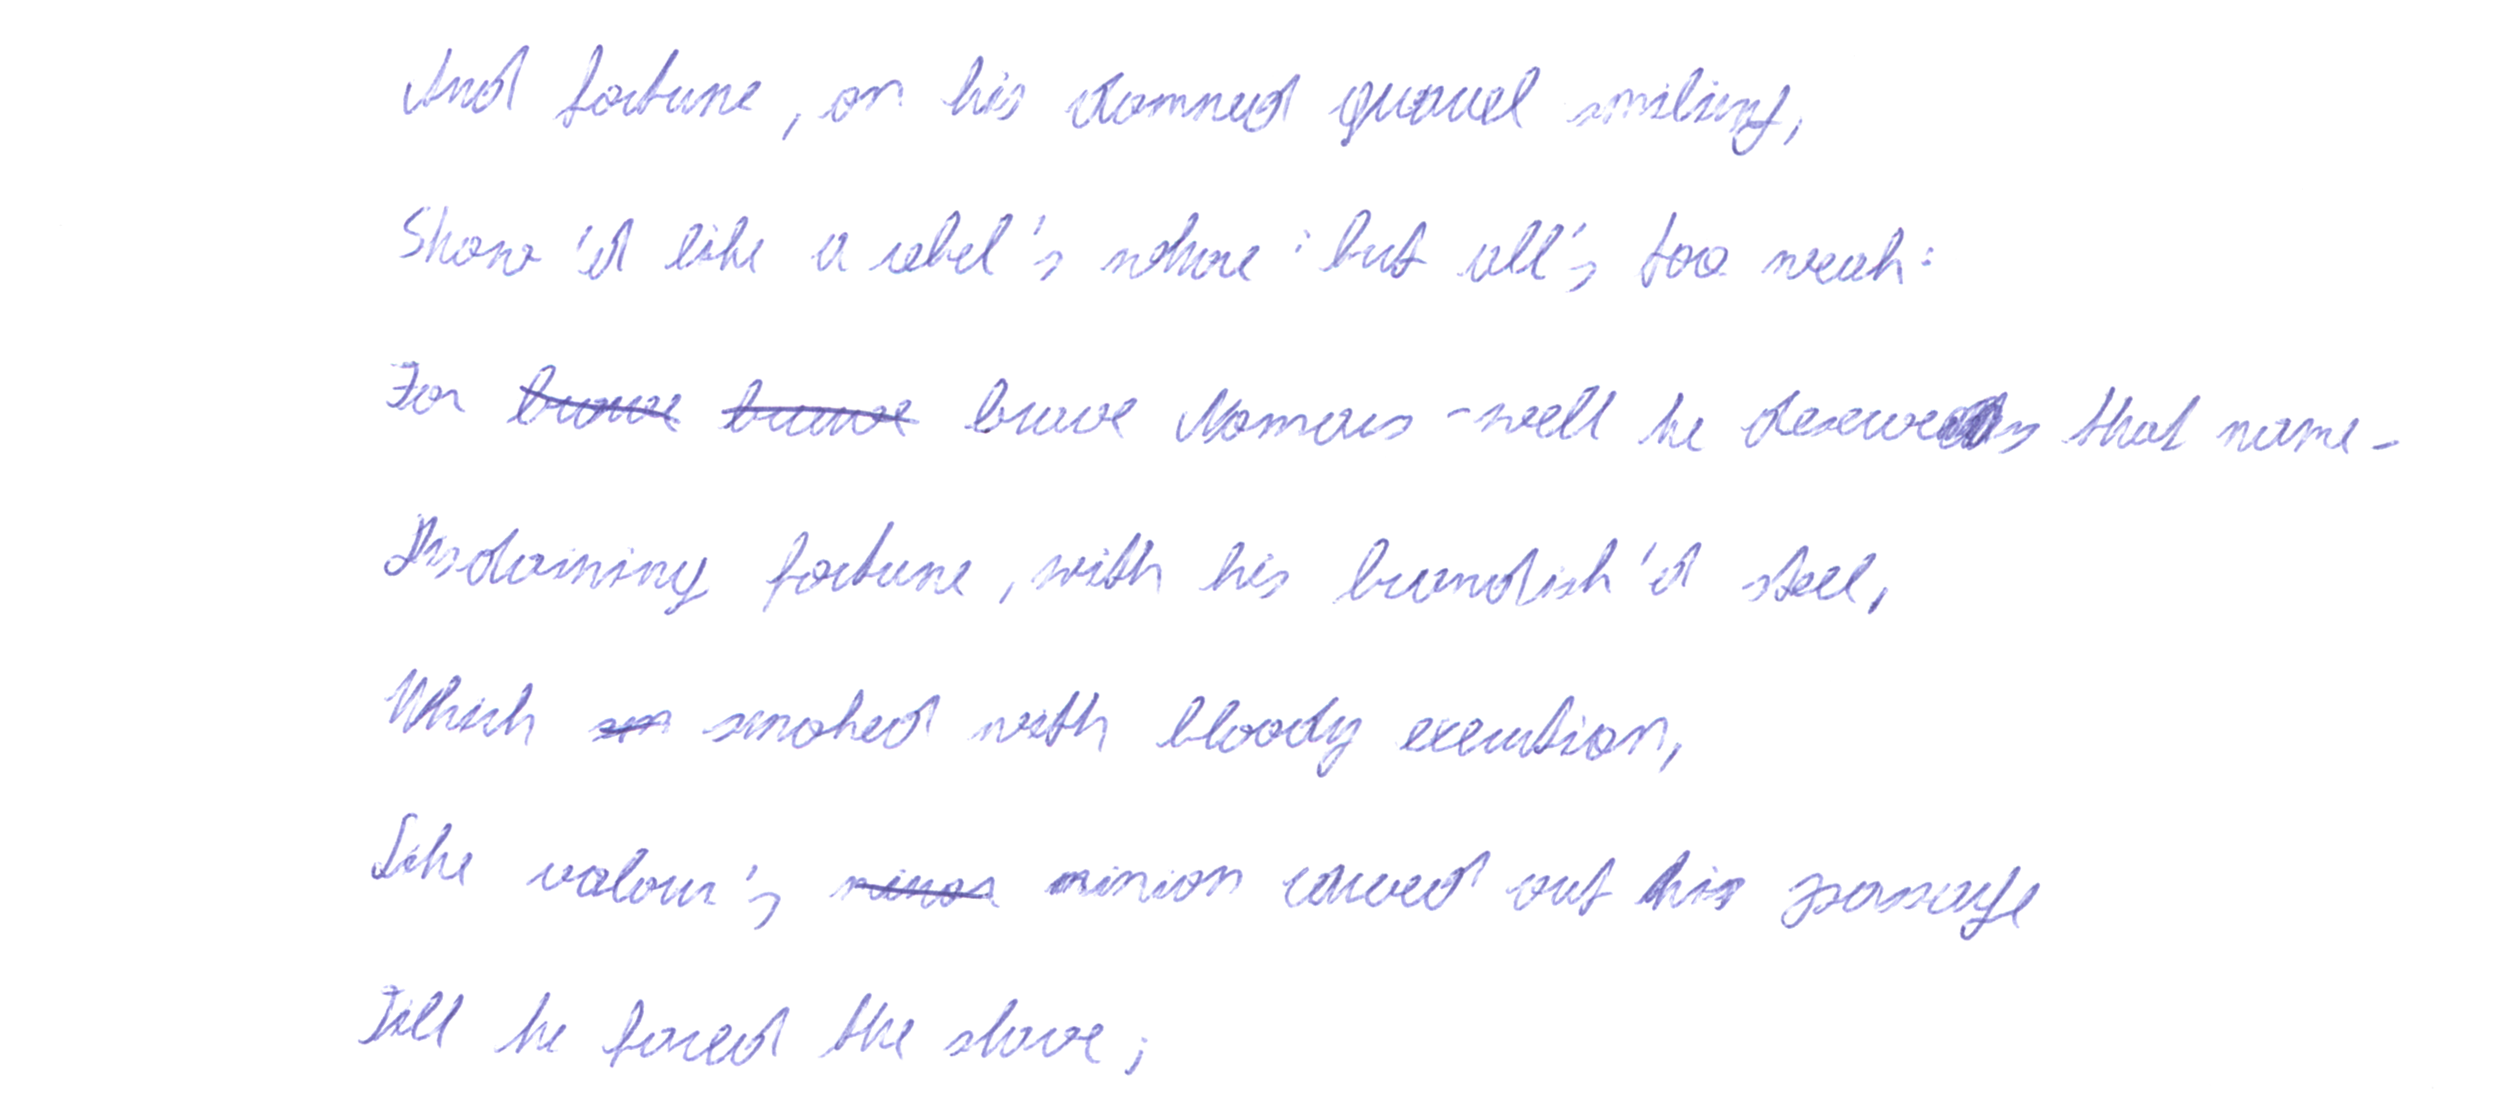 And fortune, on his damned quarrel smiling,
Show'd like a rebel's whore: but all's too weak:
For brave brave brave Macbeth -well he deserves that name-
Disdaining fortune, with his brandish'd steel,
Which smoked with bloody execution,
Like valour's minion carved out his passage
Till he faced the slave;